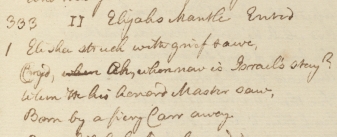 333 II Elijahs Mantle Entrd
1 Elisha struck with grief & awe,
Cry'd, when Ah, where now is Israel's stay?
When he his honor'd Master saw,
Born by a fiery Carr away.